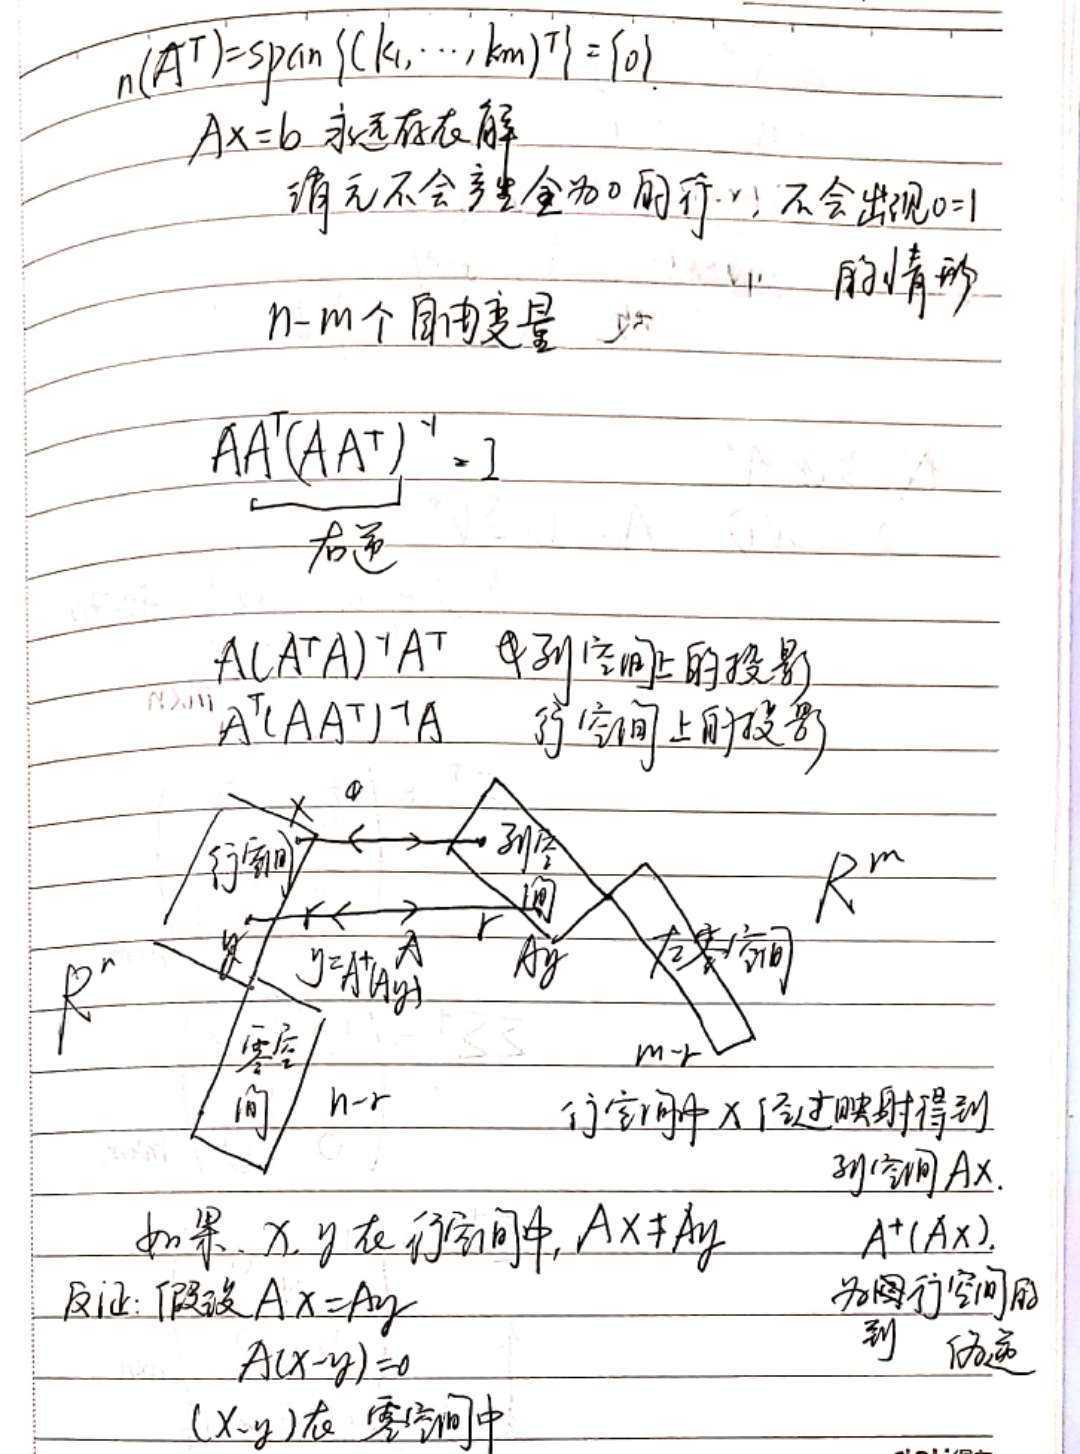 n(Aᵀ)=span{(k₁,⋯,km)ᵀ}={0}
Ax=b 永远存在解
消元不会产生全为0的行∵不会出现0=1
的情形
n-m个自由变量
AAᵀ(AAᵀ)⁻¹=I
右逆
A(AᵀA)⁻¹Aᵀ 列空间上的投影
Aᵀ(AAᵀ)⁻¹A 行空间上的投影
x
行空间
列空
间
Rᵐ
r
r
y
y=A⁺(Ay)
A
Ay
左零空间
Rⁿ
零空
间
n-r
m-r
行空间中x经过映射得到
列空间Ax.
如果 x,y在行空间中,Ax≠Ay
A⁺(Ax).
反证:假设Ax=Ay
为回行空间的
到 伪逆
A(x-y)=0
(x-y)在零空间中